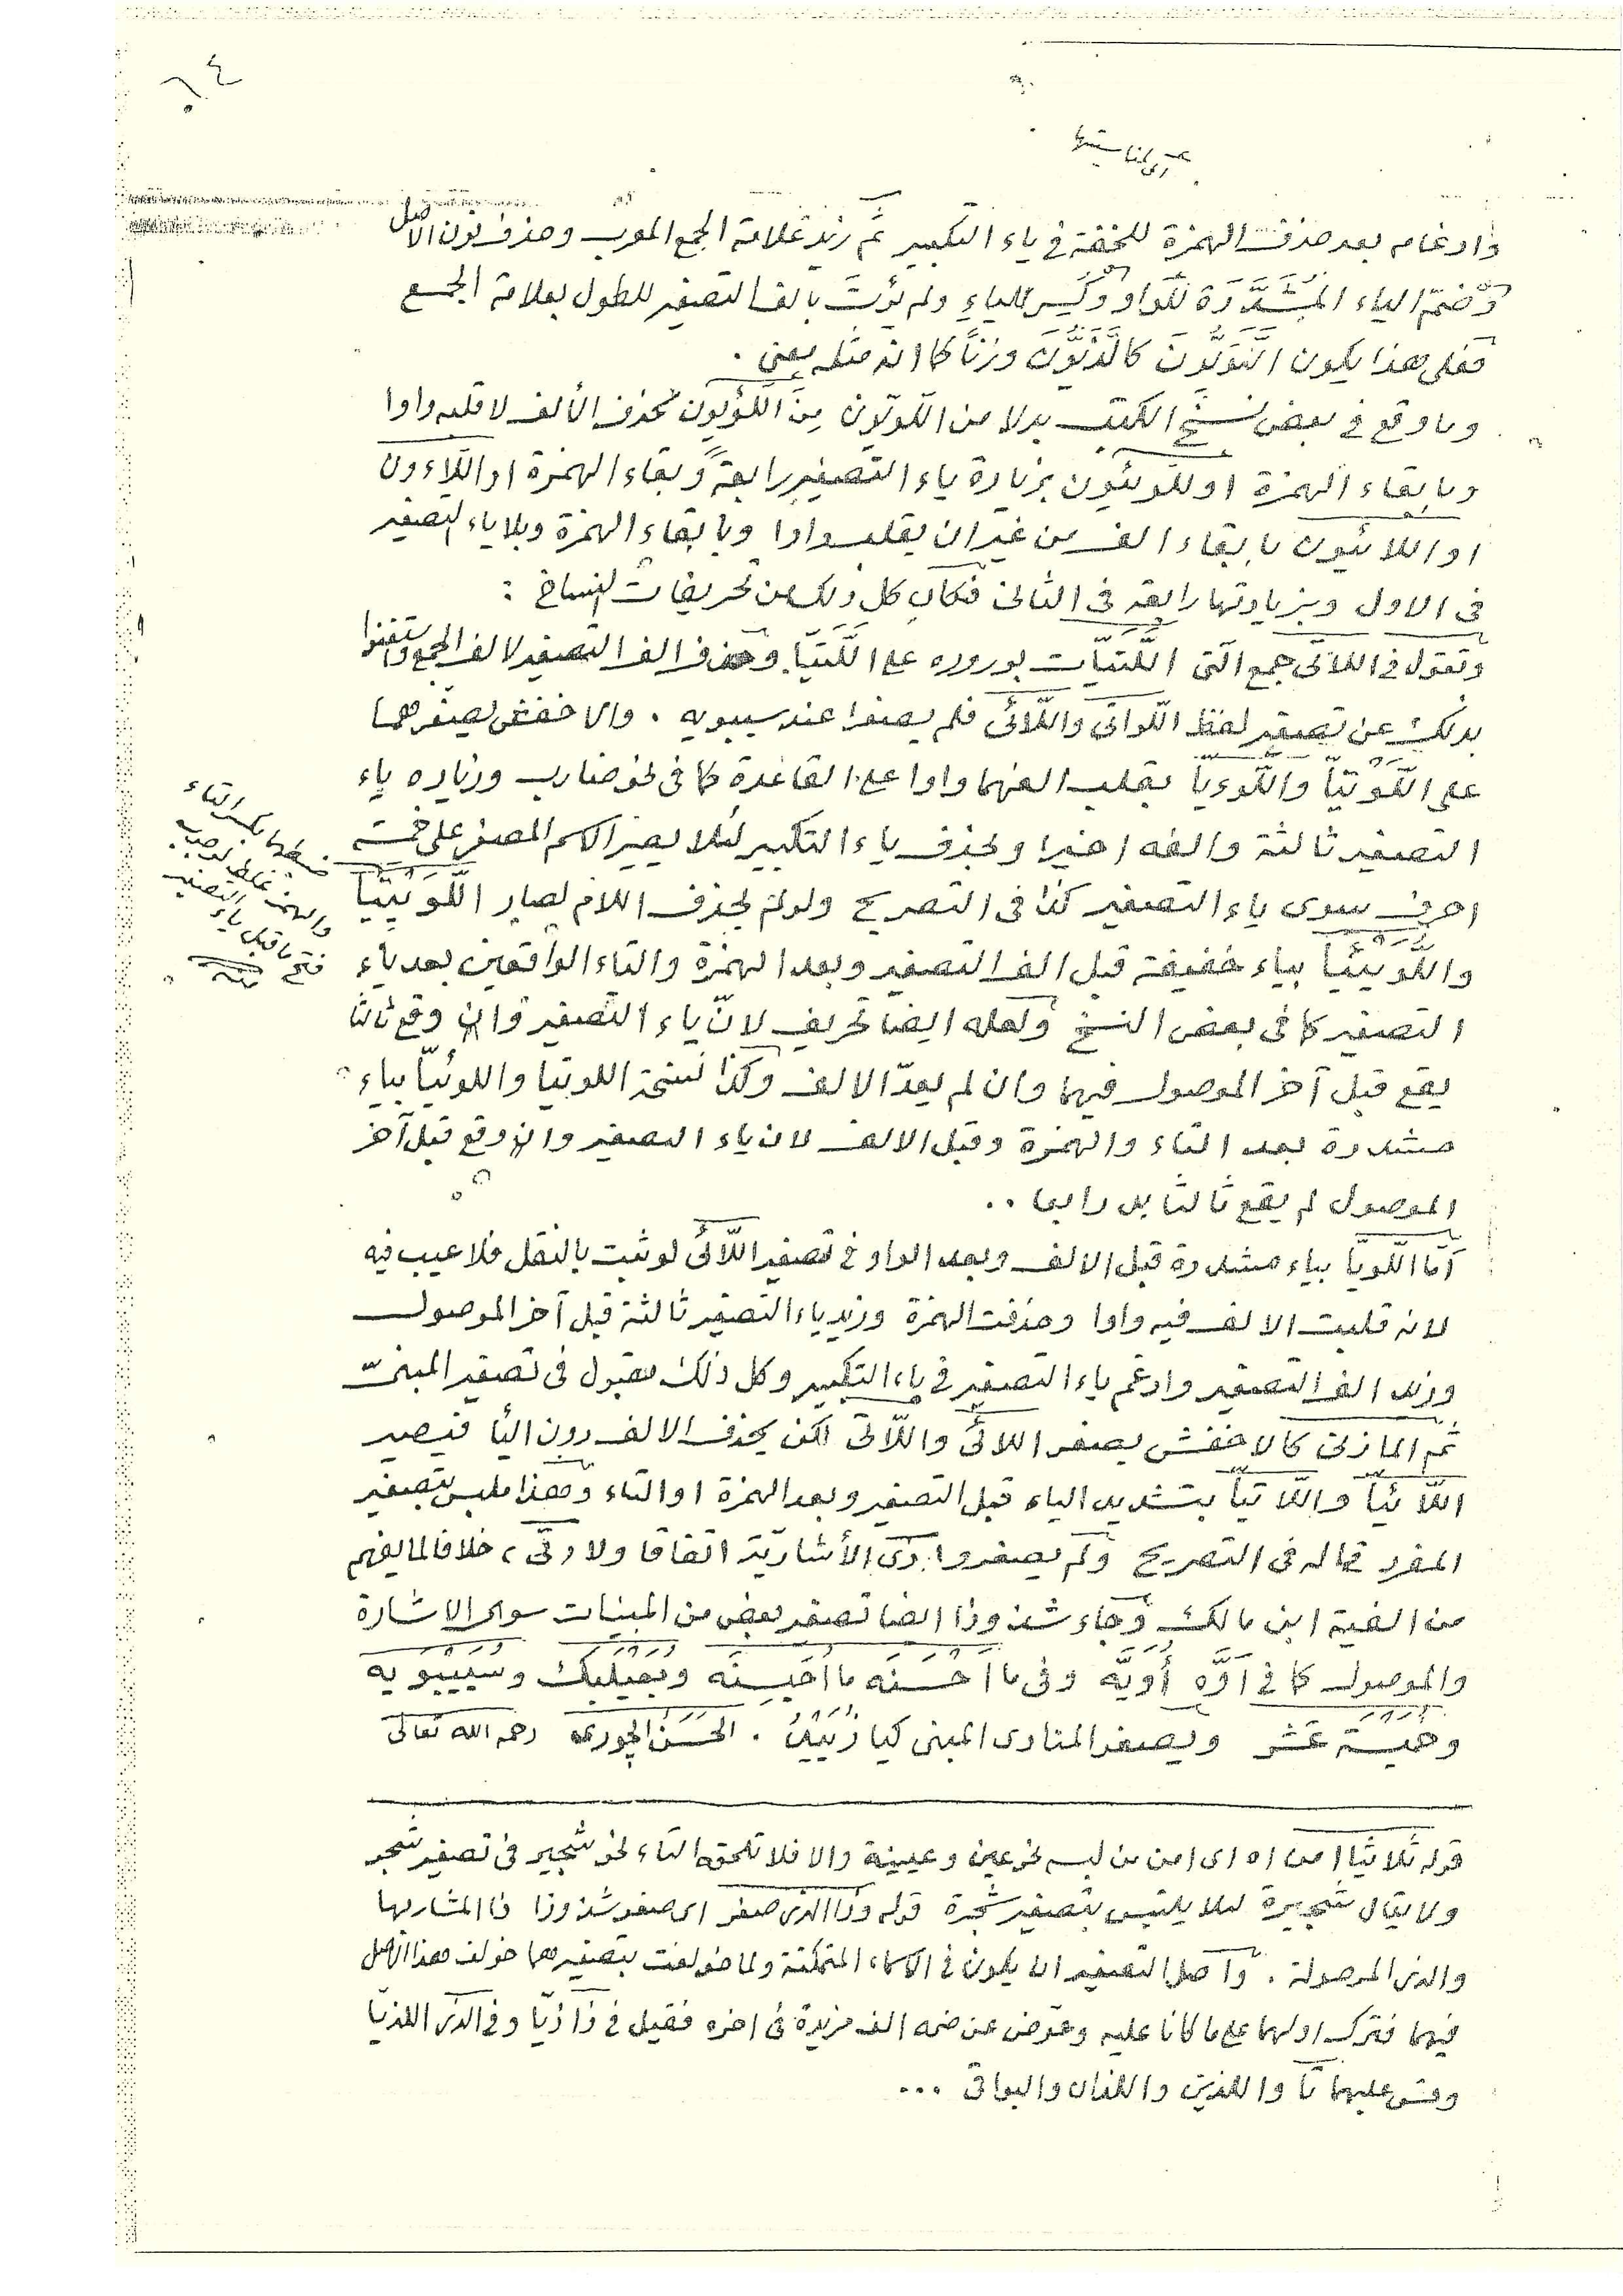 ٦٤
وادغام بعد حذف الهمزة للخفة فى ياء التكبير ثم زيد علامة الجمع المعرب وحذف نون الاصل
وضمّ الياء المشدّدة للواو وكسر للياء ولم يؤت بالف التصغير للطول بعلامة الجمع
فعلى هذا يكون اللَّوَيُّونَ كاللَّذَيُّونَ وزنًا كما انه مثله يعنى .
وما وقع فى بعض نسخ الكتب بدلا من اللّويّون مِنَ اللّؤيون بحذف الألف لا قلبه واوا
وبابقاء الهمزة او اللّويئون بزيادة ياء التصغير رابعة وبقاء الهمزة او اللّاءون
او اللائيون بابقاء الف من غير ان يقلب واوا وبابقاء الهمزة وبلا ياء التصغير
فى الاول وبزيادتها رابعة فى الثانى فكان كل ذلك من تحريفات النساخ :
وتقول فى اللاتى جمع الّتى اللَّتَيَّات بوروده على اللَّتَيَّا وحذف الف التصغير لالف الجمع واستغنوا
بذلك عن تصغير لفظ اللّواتى واللّائى فلم يصغرا عند سيبويه . والاخفش يصغرهما
على اللَّوَيْتَيَّا واللَّوَيَّا بقلب الفهما واوا على القاعدة كما فى نحو ضارب وزياده ياء
التصغير ثالثة والفه اخيرا وبحذف ياء التكبير لئلا يصير الاسم المصغر على خمسة
احرف سوى ياء التصغير كذا فى التصريح ولو لم يحذف اللام لصار اللَّوَيْتِيَا
واللَّوَيْئِيَا بياء خفيفة قبل الف التصغير وبعد الهمزة والتاء الواقعين بعد ياء
التصغير كما فى بعض النسخ ولعله ايضا تحريف لانّ ياء التصغير وان وقع ثالثا
يقع قبل آخر الموصول فيهما وان لم يعدّ الالف وكذا نسخة اللوتيا واللوئيّا بياء
مشددة بعد التاء والهمزة وقبل الالف لان ياء التصغير وان وقع قبل آخر
الموصول لم يقع ثالثا بل رابعا . .
أمّا اللّويّا بياء مشددة قبل الالف وبعد الواو فى تصغير اللّائى لو ثبت بالنقل فلا عيب فيه
لانه قلبت الالف فيه واوا وحذفت الهمزة وزيد ياء التصغير ثالثة قبل آخر الموصول
وزيد الف التصغير وادغم ياء التصغير فى ياء التكبير وكل ذلك مقبول فى تصغير المبنىّ
ثم المازنى كالاخفش يصغر اللائى واللّاتى لكن يحذف الالف دون اليا فيصير
اللّائيّا واللّاتيّا بتشديد الياء قبل التصغير وبعد الهمزة او التاء وهذا ملبس بتصغير
المفرد قاله فى التصريح ولم يصغروا ذى الأشاريّة اتفاقا ولا تى ، خلافا لما يفهم
من الفية ابن مالك وجاء شذوذا ايضا تصغير بعض من المبنيات سوى الاشارة
والموصول كما فى اَوَّه أُوَيَّه وفى ما اَحْسَنَه ما اُحَيْسِنَه وبُعَيْلَبَك وسُيَيْبويه
وخميسة عَشر ويصغر المنادى المبنى كيا زُيَيْدُ . الحسن الجورى رحمه الله تعالى
ضبطها بكسر التاء
والهمزة غلط لوجوب
فتح ما قبل ياء التصغير
منه
قوله ثلاثيا امن اه اى امن من لبس نحو عين وعيينة والا فلا تلحقه التاء نحو شجير فى تصغير شجر
ولا يقال شجيرة لئلا يلتبس بتصغير شجرة قوله وذا الذى صغر اى صغر شذوذا ذا المشار بها
والذى الموصولة . وآصل التصغير ان يكون فى الاسماء المتمكنة ولما خولفت بتصغيرهما خولف هذا الاصل
فيهما فترك اولهما على ما كانا عليه وعوّض عن ضمه الف مزيدة فى اخره فقيل فى ذا ذيّا وفى الذى اللذيّا
وقس عليهما تا واللذين واللذان والبواقى ...